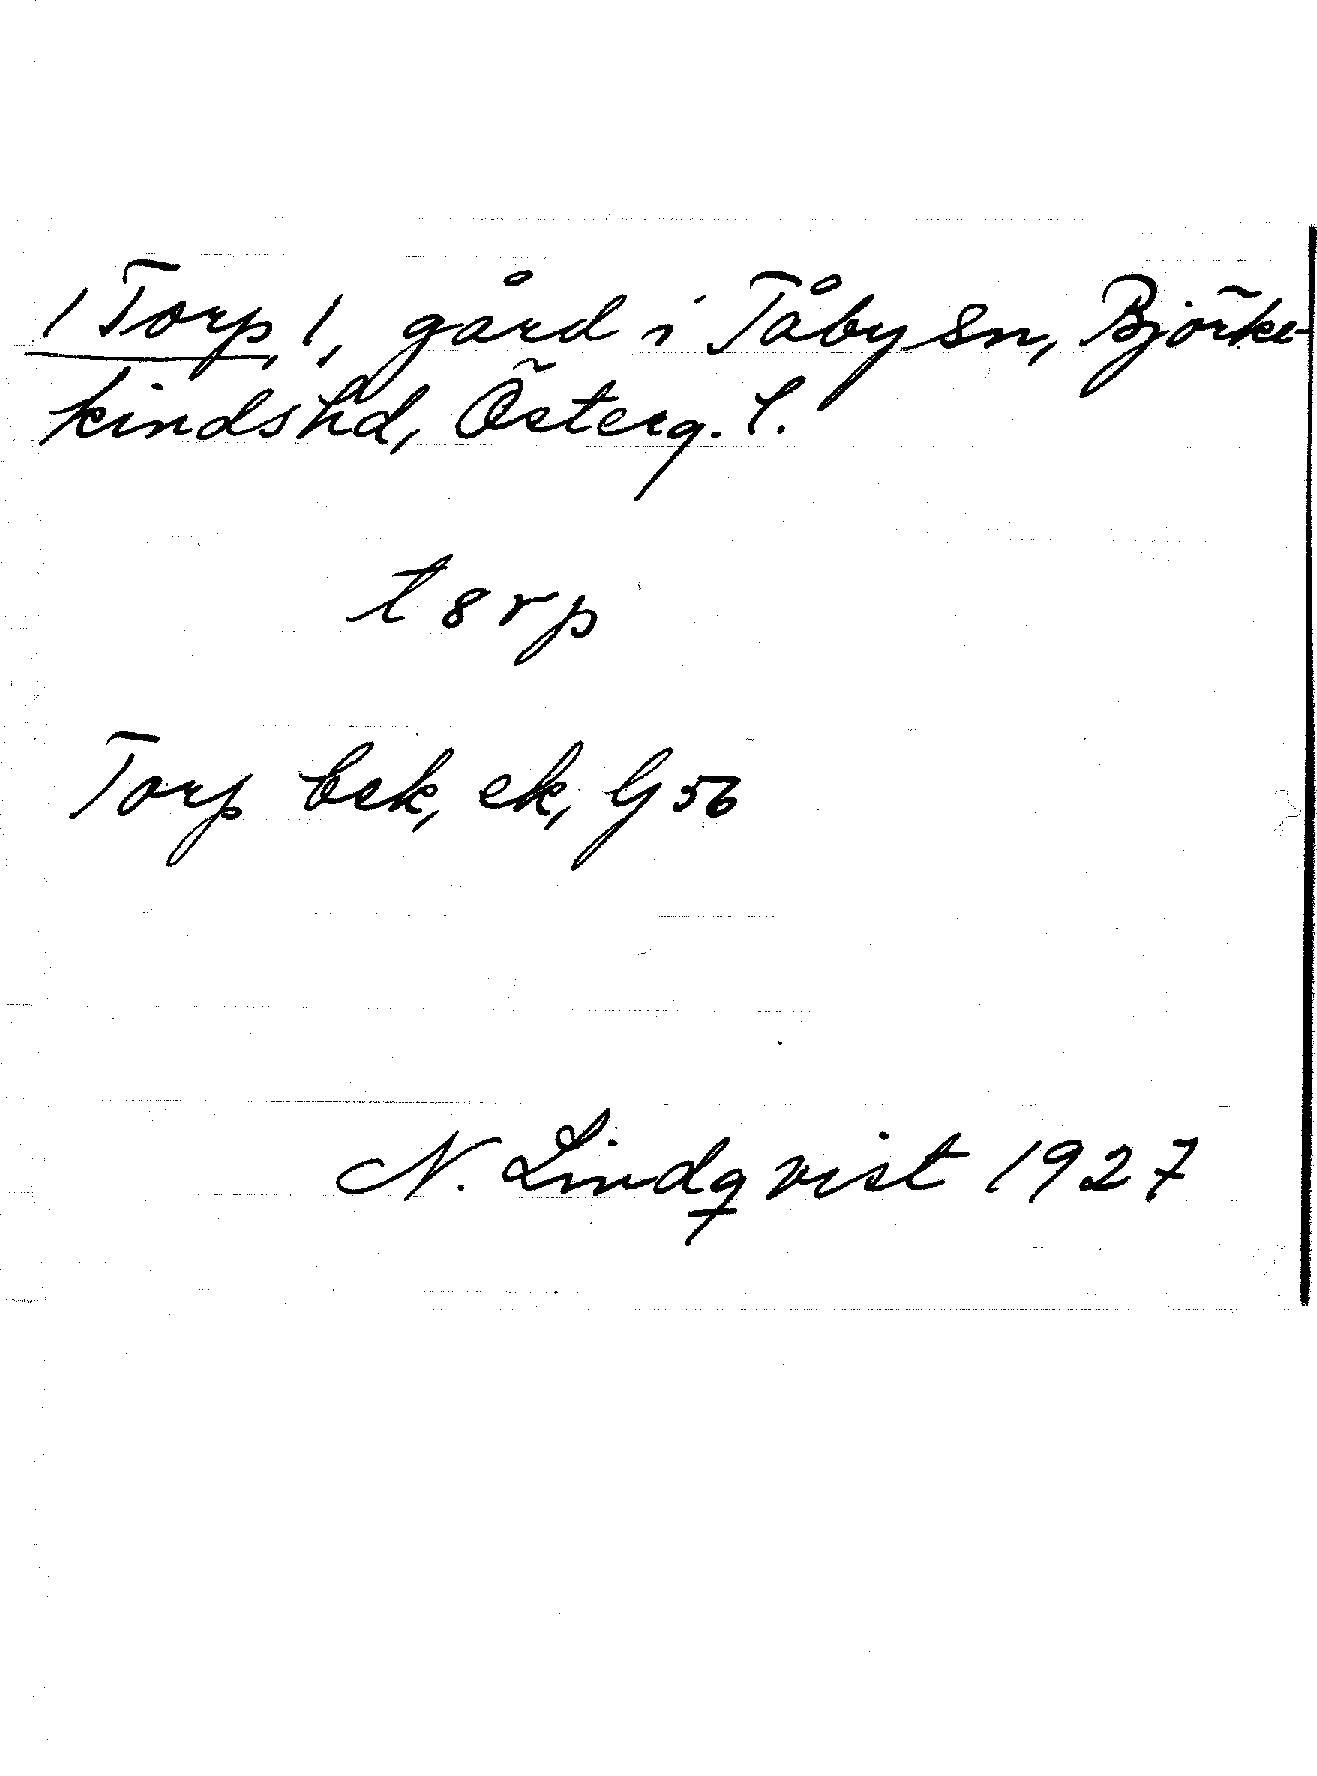 /Torp, 1, gård i Tåby sn, Björke-
kindshd, Österg. l.
t8rp
Torp bek, ek, G 56
N. Lindqvist 1927